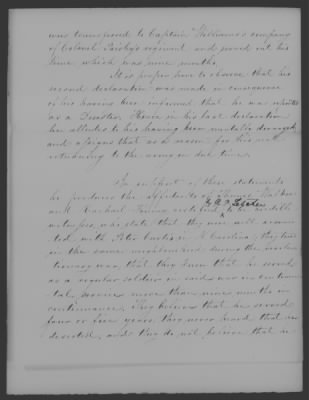 was transferred to Captain Williams's company
of Colonel Paisley's regiment and served out his
time which was nine months.
It is proper here to observe that his
second declaration was made in consequence
of his having been informed that he was reported
as a Deserter. Hence in his last declaration
he alludes to his having been mentally deranged
and assigns that as a reason for his not
returning to the army in due time.
In support of these statements
he produces the affidavits of Thomas
and Rachael certified to be credible
by
witnesses, who state that they were well acquain
ted with Peter in Carolina, they lived
in the same neighbourhood during the revolu
tionary war, that they knew that he served
as a regular soldier in said war in continen
tal service more than nine months in
continuance. They believe that he served
four or five years, they never heard that he
deserted, and they do not believe that he